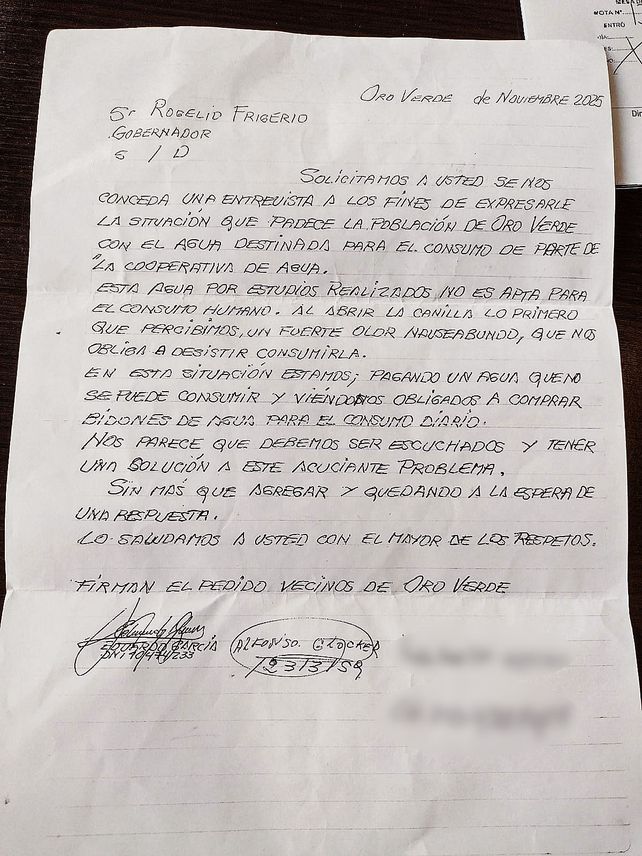 MESA D
NOTA Nº
ENTRÓ
Dir
ORO VERDE de NOVIEMBRE 2025
Sr ROGELIO FRIGERIO
GOBERNADOR
S / D
SOLICITAMOS A USTED SE NOS
CONCEDA UNA ENTREVISTA A LOS FINES DE EXPRESARLE
LA SITUACIÓN QUE PADECE LA POBLACIÓN DE ORO VERDE
CON EL AGUA DESTINADA PARA EL CONSUMO DE PARTE DE
"LA COOPERATIVA DE AGUA.
ESTA AGUA POR ESTUDIOS REALIZADOS, NO ES APTA PARA
EL CONSUMO HUMANO. AL ABRIR LA CANILLA LO PRIMERO
QUE PERCIBIMOS, UN FUERTE OLOR NAUSEABUNDO, QUE NOS
OBLIGA A DESISTIR CONSUMIRLA.
EN ESTA SITUACIÓN ESTAMOS; PAGANDO UN AGUA QUE NO
SE PUEDE CONSUMIR Y VIÉNDONOS OBLIGADOS A COMPRAR
BIDONES DE AGUA PARA EL CONSUMO DIARIO.
NOS PARECE QUE DEBEMOS SER ESCUCHADOS Y TENER
UNA SOLUCIÓN A ESTE ACUCIANTE PROBLEMA.
SIN MAS QUE AGREGAR Y QUEDANDO A LA ESPERA DE
UNA RESPUESTA.
LO SALUDAMOS A USTED CON EL MAYOR DE LOS RESPETOS.
FIRMAN EL PEDIDO VECINOS DE ORO VERDE
EDUARDO GARCÍA ALFONSO GLOCKER
DNI